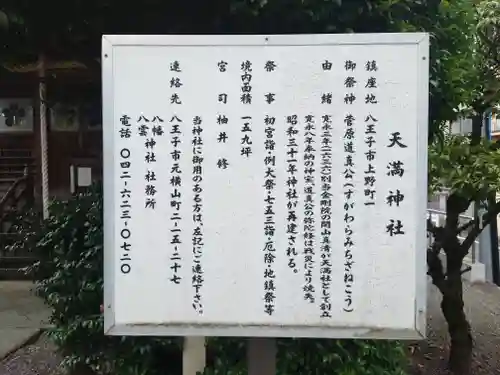 天満神社
鎮座地 八王子市上野町一
御祭神 菅原道真公(すがわらみちざねこう)
由緒 寛永三年(一六二六)別当金剛院の開山真清が天満社として創立
寛永八年奉納の神宝、道真公の弥陀経は戦災により焼失
昭和三十一年神社が再建される。
祭事 初宮詣・例大祭・七五三詣・厄除・地鎮祭等
境内面積 一五九坪
宮司 柚井 修
当神社に御用のある方は、左記にご連絡下さい。
連絡先 八王子市元横山町二-十五-二十七
八幡
八雲神社 社務所
電話 〇四二-六二三-〇七二〇